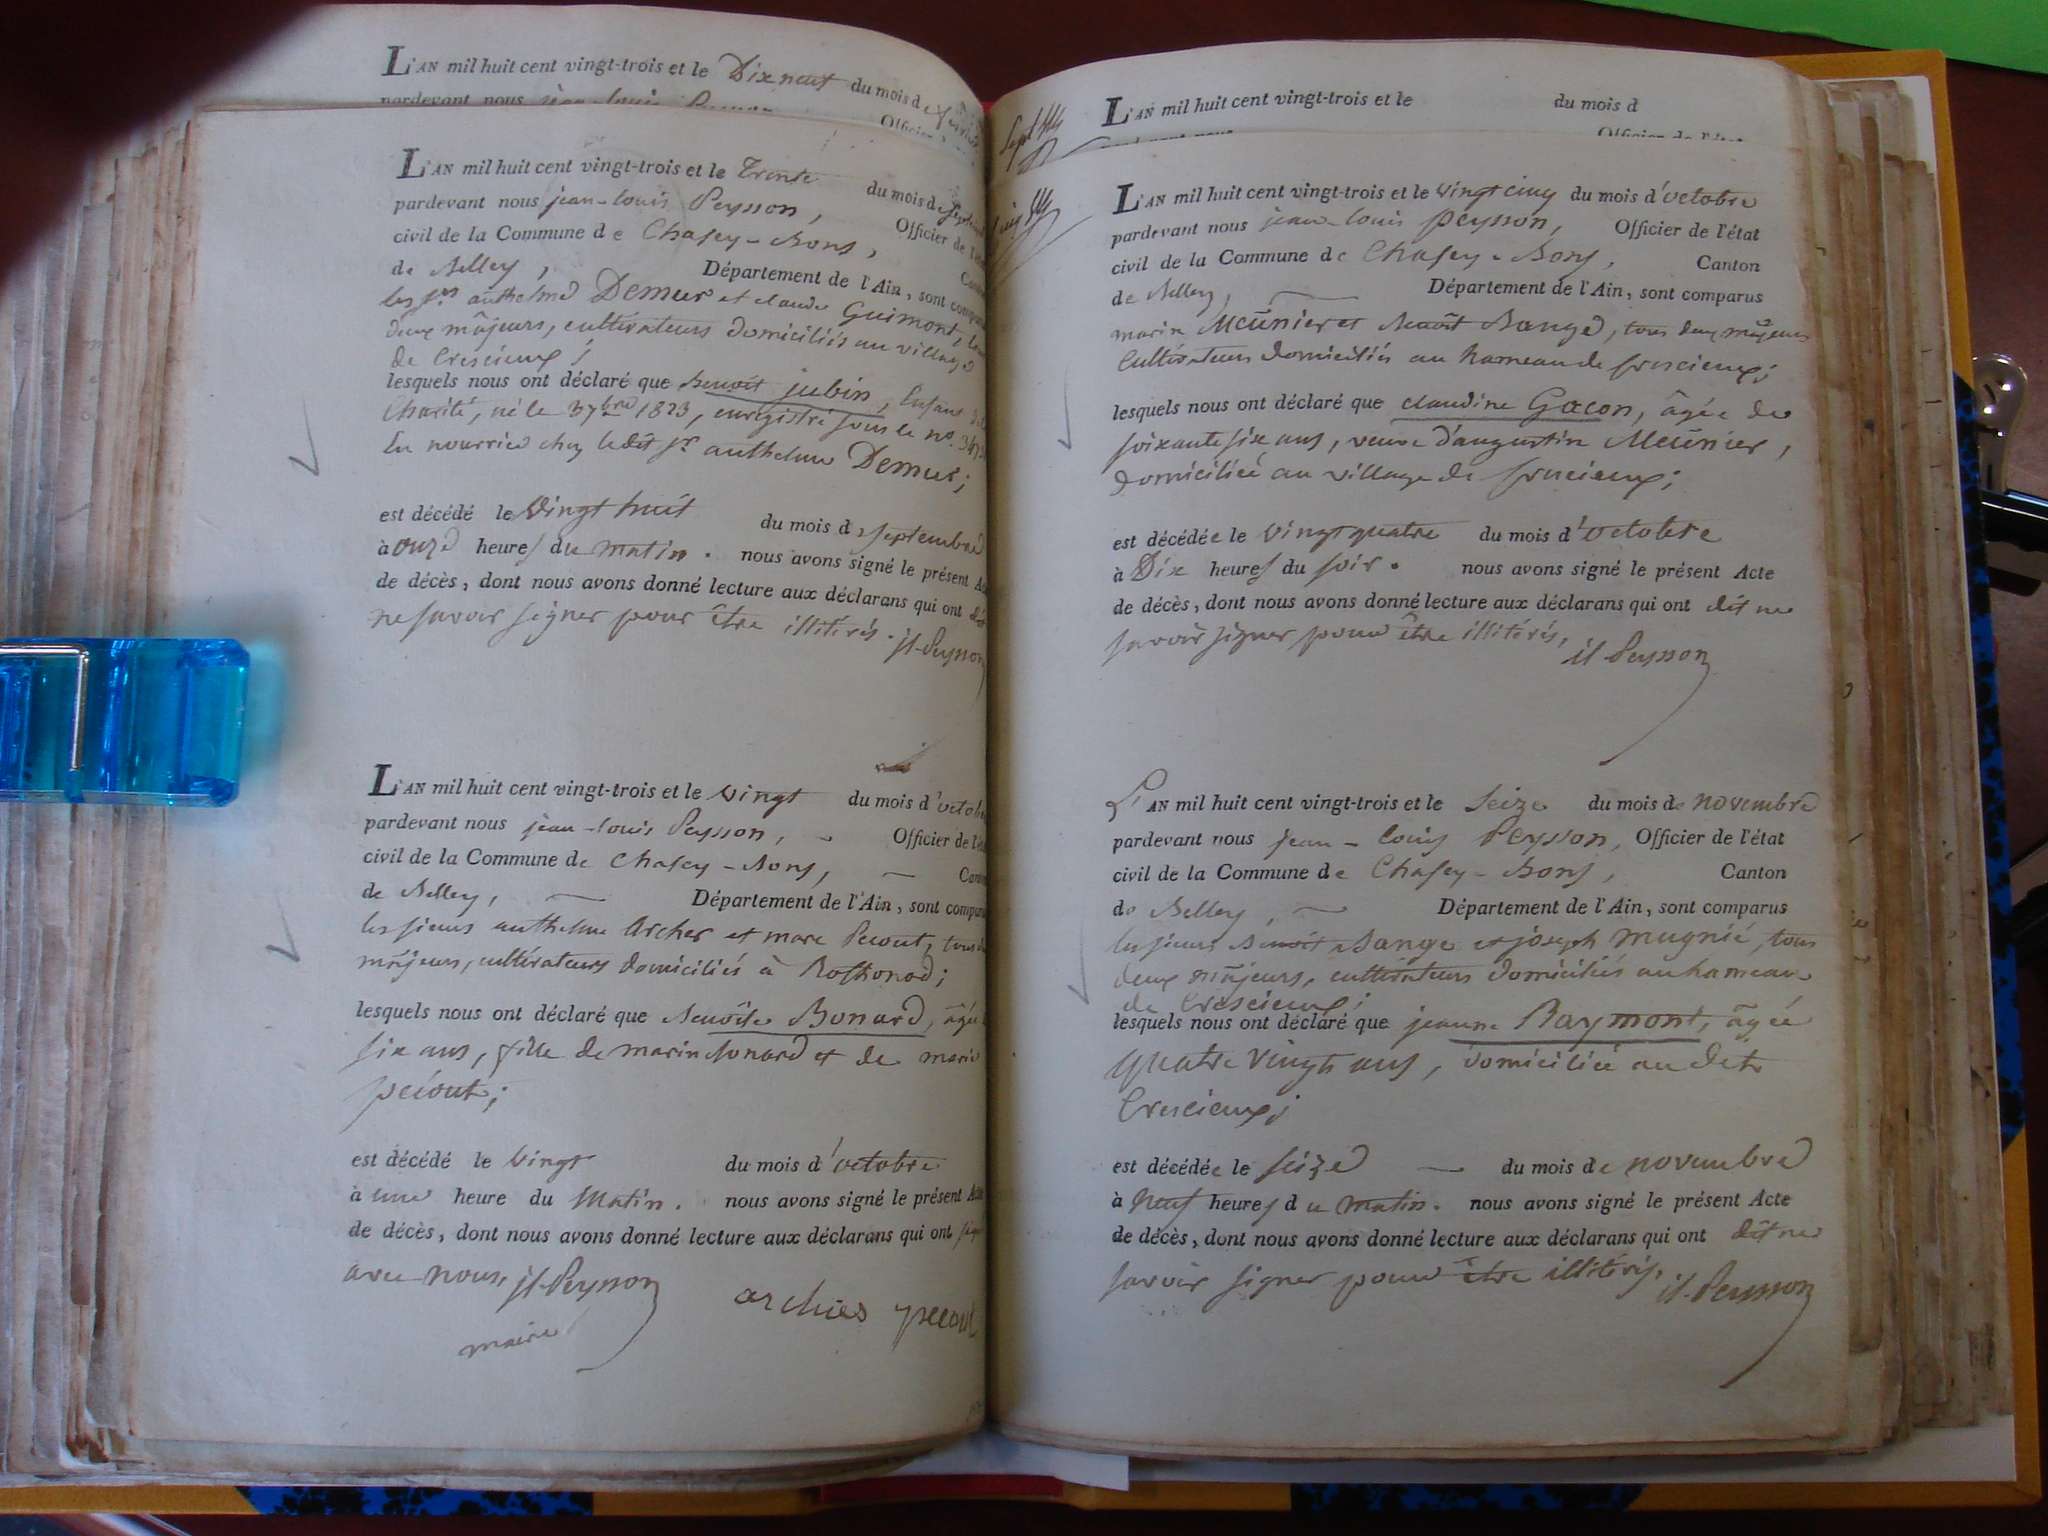 L'AN mil huit cent vingt-trois et le Dix neuf du mois de
pardevant nous jean-louis
L'AN mil huit cent vingt-trois et le Trente du mois de
pardevant nous jean-louis Peysson, Officier de
civil de la Commune de Chasey-Bons,
de Belley, Département de l'Ain, sont
les srs anthelme Demur et claude Guimont,
deux mâjeurs, cultivateurs domiciliés au village
de Crescieux;
lesquels nous ont déclaré que benoit jubin, Enfant
Charité, né le 3 7bre 1823, enregistré sous le no.
En nourrice chez ledit sr anthelme Demur;
est décédé le Vingt huit du mois d septembre
à onze heures du matin. nous avons signé le présent
de décès, dont nous avons donné lecture aux déclarans qui ont
ne savoir signer pour être illitérés. jl-Peysson
L'AN mil huit cent vingt-trois et le vingt du mois d'octobre
pardevant nous jean-louis Peysson, Officier de
civil de la Commune de Chasey-Bons,
de Belley, Département de l'Ain, sont
les sieurs anthelme Archer et marc Pecout, tous
mâjeurs, cultivateurs domiciliés à Rothonod;
lesquels nous ont déclaré que Benoîte Bonard, âgée
six ans, fille de marin bonard et de marie
pecout;
est décédé le Vingt du mois d'octobre
à une heure du Matin. nous avons signé le présent
de décès, dont nous avons donné lecture aux déclarans qui ont
avec nous, jl-Peysson
maire
archies pecout
L'AN mil huit cent vingt-trois et le du mois d
Sept
L'AN mil huit cent vingt-trois et le vingt cinq du mois d'octobre
pardevant nous jean-louis Peysson, Officier de l'état
civil de la Commune de Chasey-Bons, Canton
de Belley, Département de l'Ain, sont comparus
marin Meûnier et Benoît Bange, tous deux mâjeurs
Cultivateurs domiciliés au hameau de
lesquels nous ont déclaré que claudine Gacon, âgée de
soixante six ans, veuve d'augustin Meûnier,
domiciliée au village de
est décédée le vingt quatre du mois d'octobre
à Dix heures du soir. nous avons signé le présent Acte
de décès, dont nous avons donné lecture aux déclarans qui ont dit ne
savoir signer pour être illitérés,
jl-Peysson
L'AN mil huit cent vingt-trois et le Seize du mois de novembre
pardevant nous jean-louis Peysson, Officier de l'état
civil de la Commune de Chasey-Bons, Canton
de Belley, Département de l'Ain, sont comparus
les sieurs Benoît Bange et joseph mugnié, tous
deux mâjeurs, cultivateurs domiciliés au hameau
de Crescieux;
lesquels nous ont déclaré que jeanne Raymont, âgée
quatre vingts ans, domiciliée au dit
Crescieux;
est décédée le seize du mois de novembre
à Neuf heures du matin. nous avons signé le présent Acte
de décès, dont nous avons donné lecture aux déclarans qui ont dit ne
savoir signer pour être illitérés,
jl-Peysson